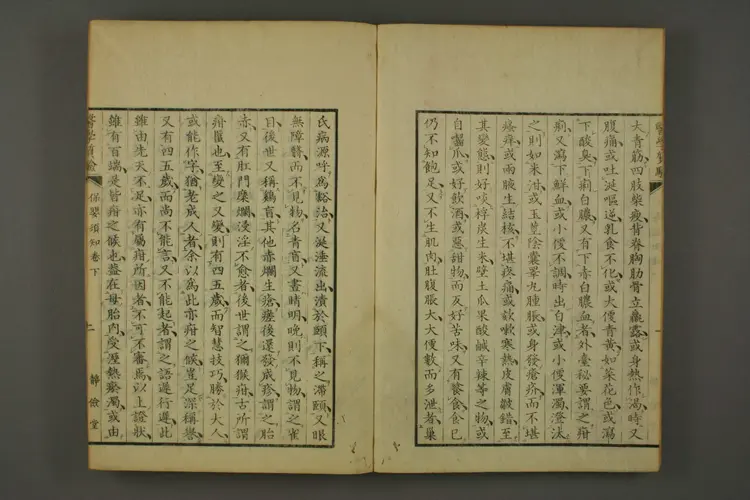 大青筋四肢柴瘦背脊胸肋骨立癥露或身熱作渴時又
腹痛或吐涎嘔逆乳食不化或大便青黃如菜花色或瀉
下酸臭下痢白膿又有下赤白膿血者外臺秘要謂之疳
痢又瀉下鮮血或小便不調時出白津或小便渾濁澄汰
之則如米泔或玉莖陰囊睪丸腫脹或身發瘡疥而不堪
痒或兩腋生結核不堪疼痛或欬嗽寒熱皮膚皴錯至
其變態則好啖桴炭生米壁土瓜果酸鹹辛辣等之物或
自齧爪或好飲酒或惡甜物而反好苦味又有饕食食已
仍不知飽足又不生肌肉肚腹脹大大便數而多泄者巢
氏病源呼為豁泔又涎湩流出漬於頤下稱之滯頤又眼
無障翳而不見物名青盲又晝晴明晚則不見物謂之雀
目後世又稱雞盲其他赤爛生瘡瘥後還發或疹謂之胎
赤又有肛門糜爛浸淫不愈者後世謂之獼猴疳古所謂
疳䘌也至變之又變則有四五歲而智慧技巧勝於大人
或能作字猶老成人者余以為此亦疳之候豈足深稱譽
又有四五歲而尚不能言又不能起者謂之語遲行遲此
雖由先天不足亦有屬疳所因者不可不審焉以上證狀
雖有百端是皆疳之候也蓋在母胎內受溼熱瘀濁或由
保嬰須知卷下
靜儉堂